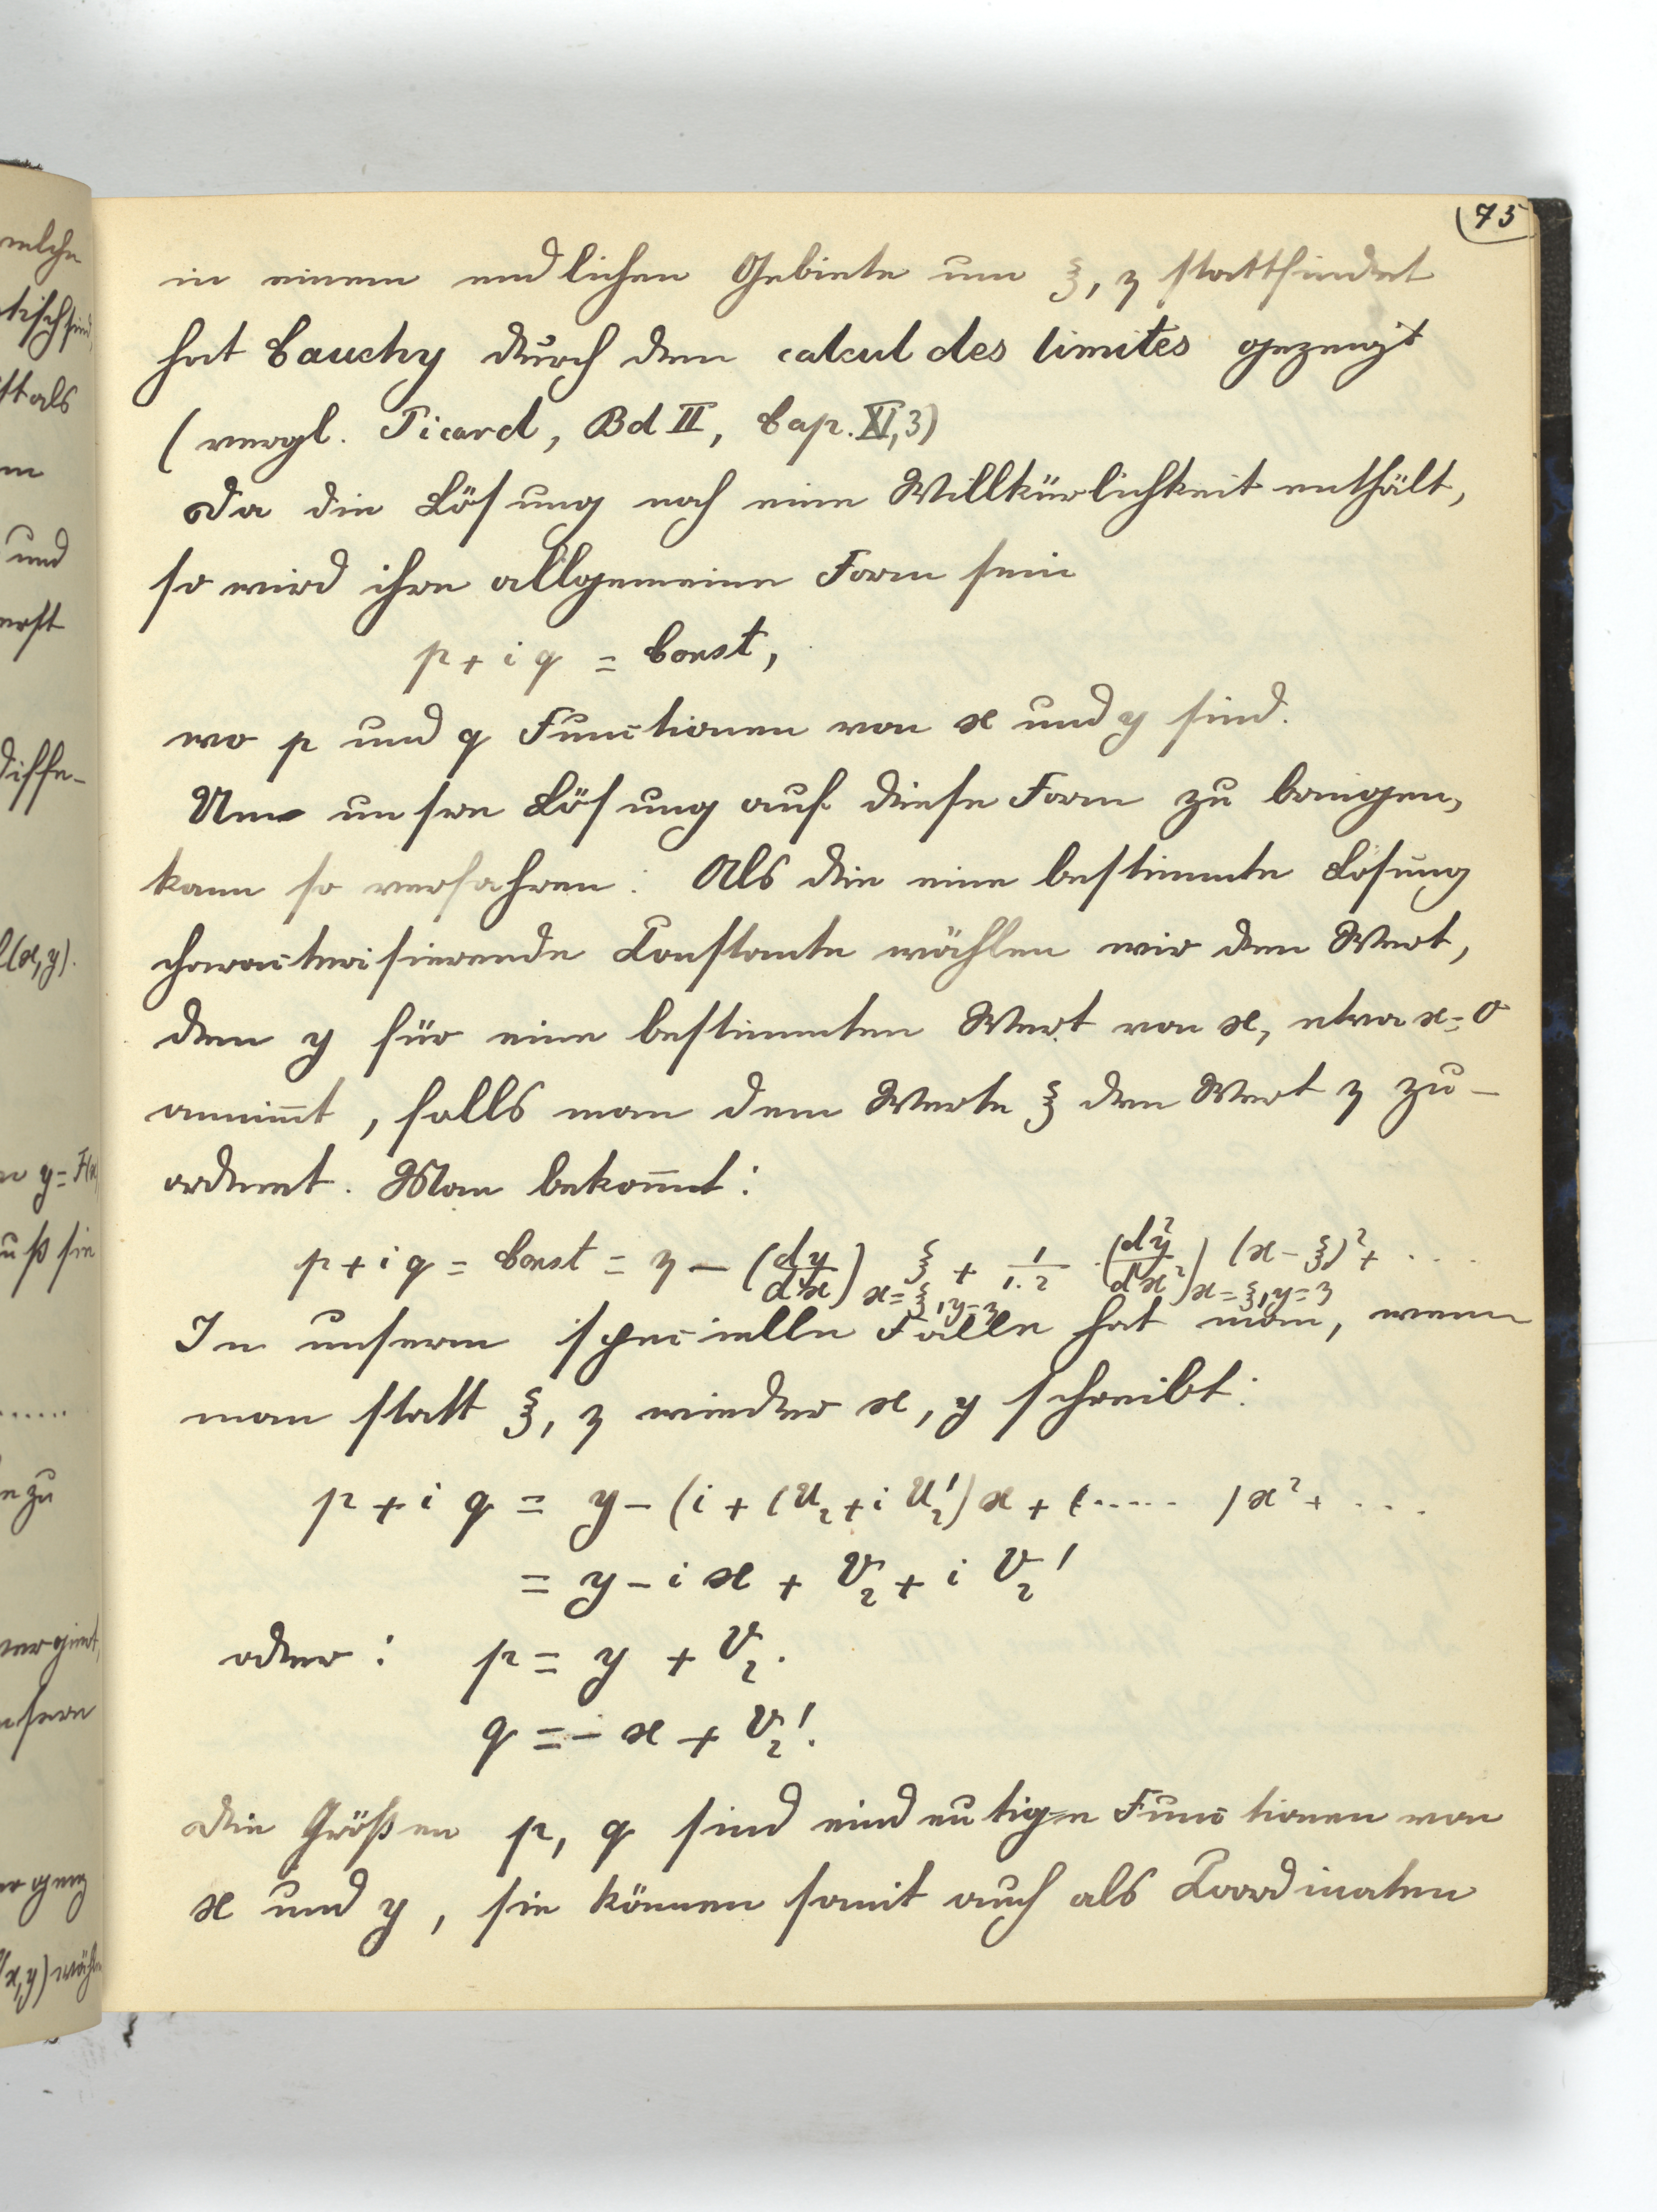 75
in einem endlichen Gebiete um ξ, η stattfindet
hat Cauchy durch den calcul des limites gezeigt
(vergl. Picard, Bd II, Cap. XI, 3)
Da die Lösung noch eine Willkürlichkeit enthält,
so wird ihre allgemeine Form sein
p + i q = Const,
wo p und q Functionen von x und y sind.
Um unsere Lösung auf diese Form zu bringen,
kann so verfahren: Als die eine bestimmte Lösung
characterisierende Constante wählen wir den Wert,
den y für eine bestimmten Wert von x, etwa x=0
annim̅t, falls man dem Werte ξ den Wert η zu-
ordnet. Man bekom̅t:
p + i q = Const = η − (dy/dx)_{x=ξ, y=η} ξ + 1/1.2 (d²y/dx²)_{x=ξ, y=η} (x − ξ)² + ....
In unserm speciellen Falle hat man, wenn
man statt ξ, η wieder x, y schreibt:
p + i q = y − (i + (U₂ + i U₂') x + (..... ) x² + ....
= y − i x + V₂ + i V₂'
oder: p = y + V₂.
q = − x + V₂'.
Die Größen p, q sind eindeutige Functionen von
x und y, sie können somit auch als Coordinaten
welche
tisch sind,
ist als
und
erst
diffe-
l(x,y).
y = F(x
uß sie
.....
zu
vergiert,
unsern
(x,y) wähl